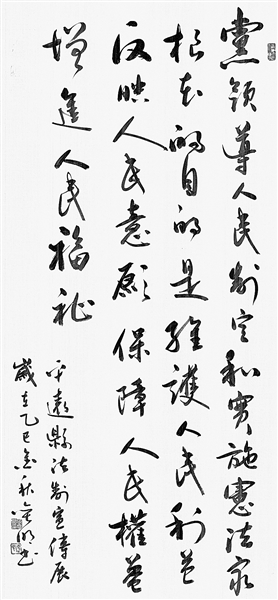 黨領導人民制定和實施憲法最
根本的目的是維護人民利益
反映人民意願保障人民權益
增進人民福祉
平遠縣法制宣傳展
歲在乙巳金秋書